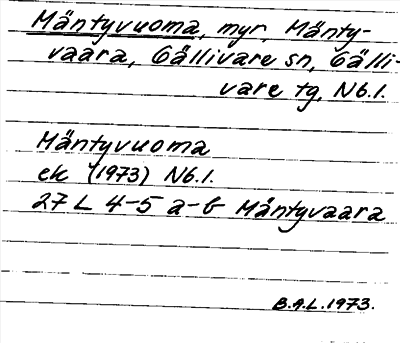 Mäntyvuoma, myr, Mänty-
vaara, Gällivare sn, Gälli-
vare tg, Nb.l.
Mäntyvuoma
ek (1973) Nb.l.
27 L 4-5 a-b Mäntyvaara
B.A.L. 1973.